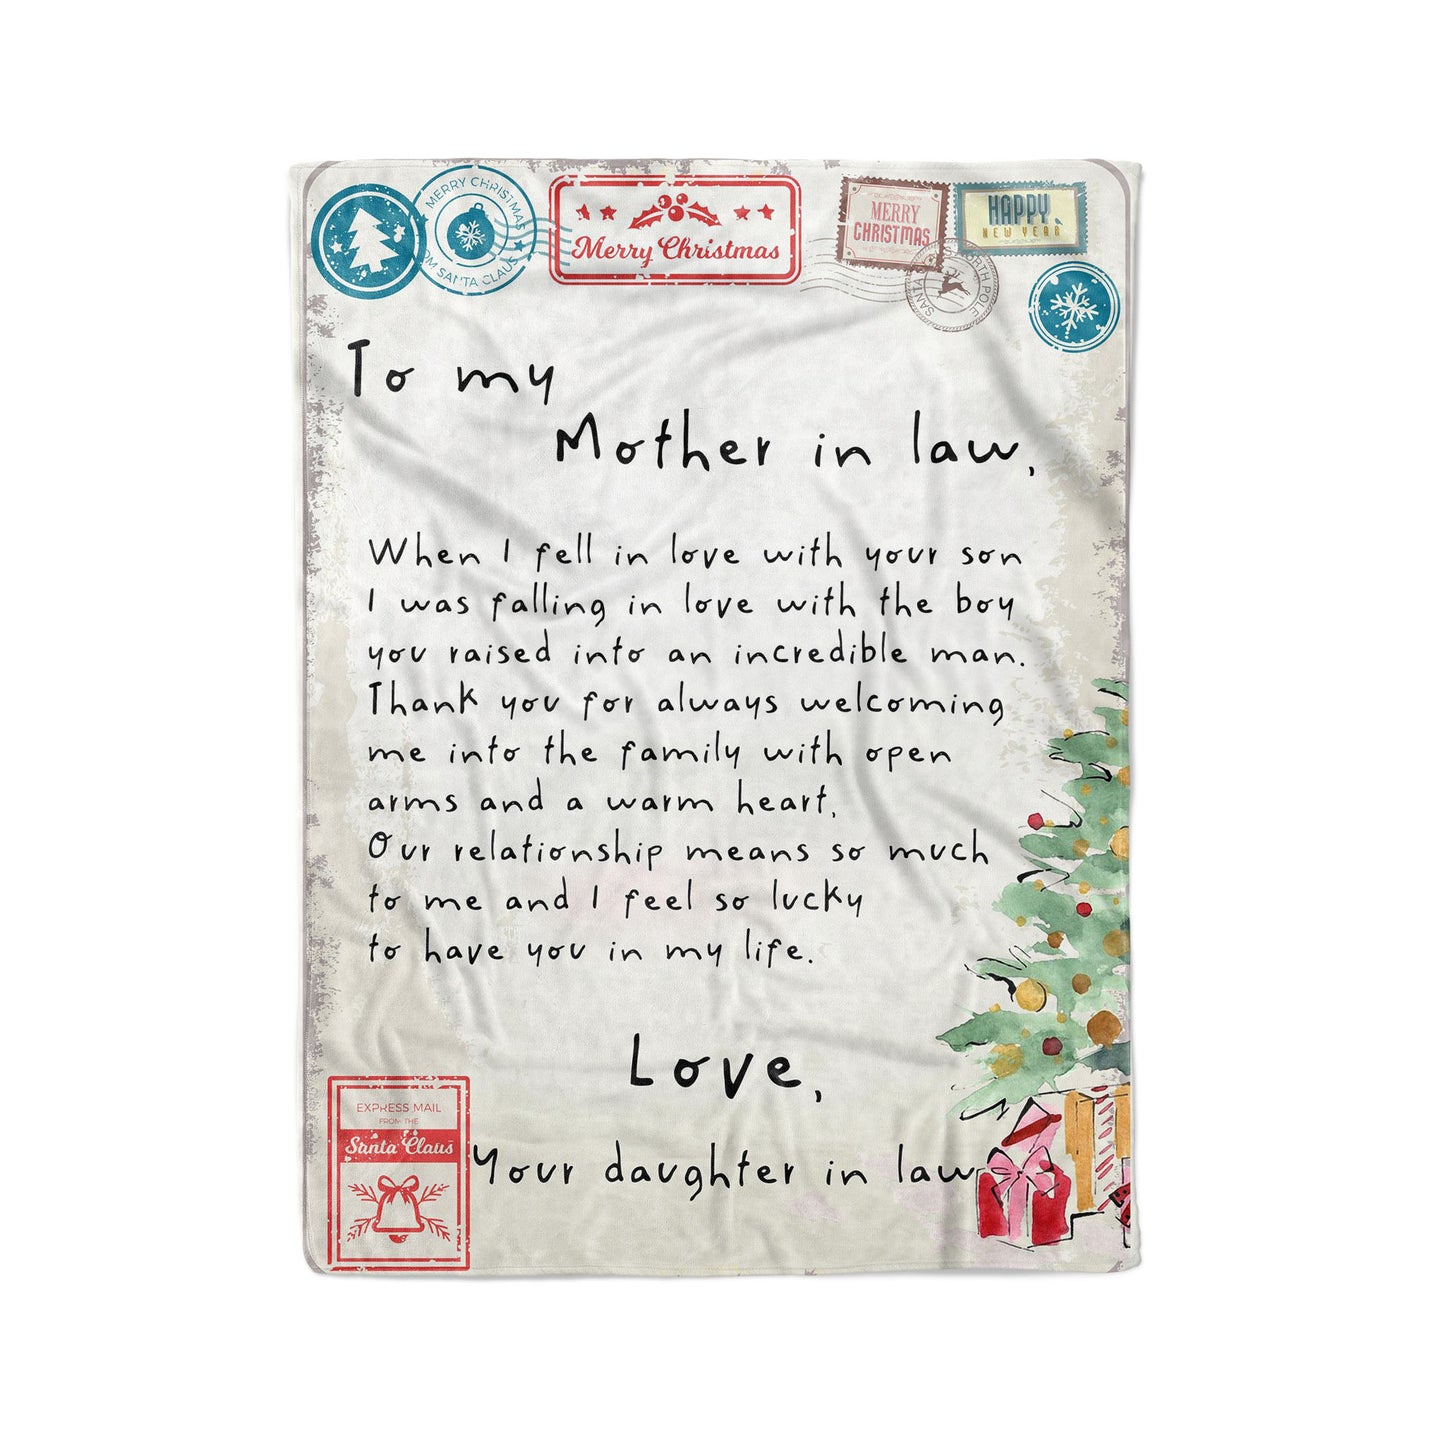 MERRY CHRISTMAS
OM SANTA CLAUS
Merry Christmas
MERRY
CHRISTMAS
HAPPY
NEW YEAR
SANTA
NORTH POLE
To my
Mother in law,
When I fell in love with your son
I was falling in love with the boy
you raised into an incredible man.
Thank you for always welcoming
me into the family with open
arms and a warm heart,
Our relationship means so much
to me and I feel so lucky
to have you in my life.
Love,
Your daughter in law
EXPRESS MAIL
FROM THE
Santa Claus